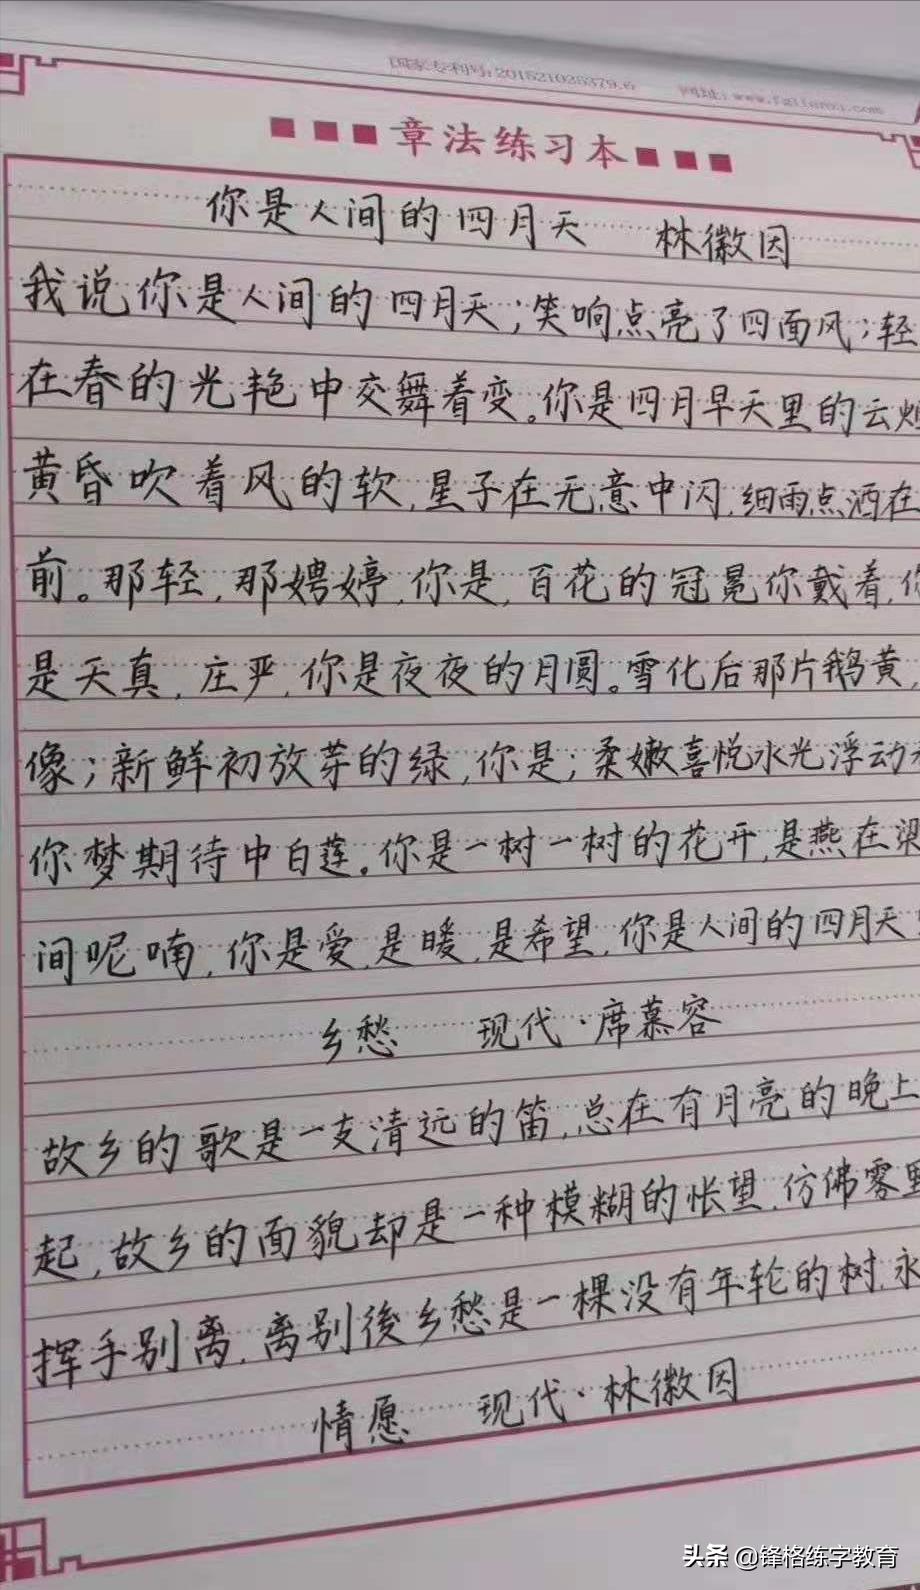 国家专利号:201521035379.6 网址:www.
章法练习本
你是人间的四月天 林徽因
我说你是人间的四月天;笑响点亮了四面风;轻
在春的光艳中交舞着变。你是四月早天里的云烟
黄昏吹着风的软,星子在无意中闪,细雨点洒在
前。那轻,那娉婷,你是,百花的冠冕你戴着,你
是天真,庄严,你是夜夜的月圆。雪化后那片鹅黄,
像;新鲜初放芽的绿,你是;柔嫩喜悦水光浮动着
你梦期待中白莲。你是一树一树的花开,是燕在梁
间呢喃,你是爱,是暖,是希望,你是人间的四月天!
乡愁 现代·席慕容
故乡的歌是一支清远的笛,总在有月亮的晚上
起,故乡的面貌却是一种模糊的怅望,仿佛雾里
挥手别离,离别後乡愁是一棵没有年轮的树,永
情愿 现代·林徽因
头条@锋格练字教育